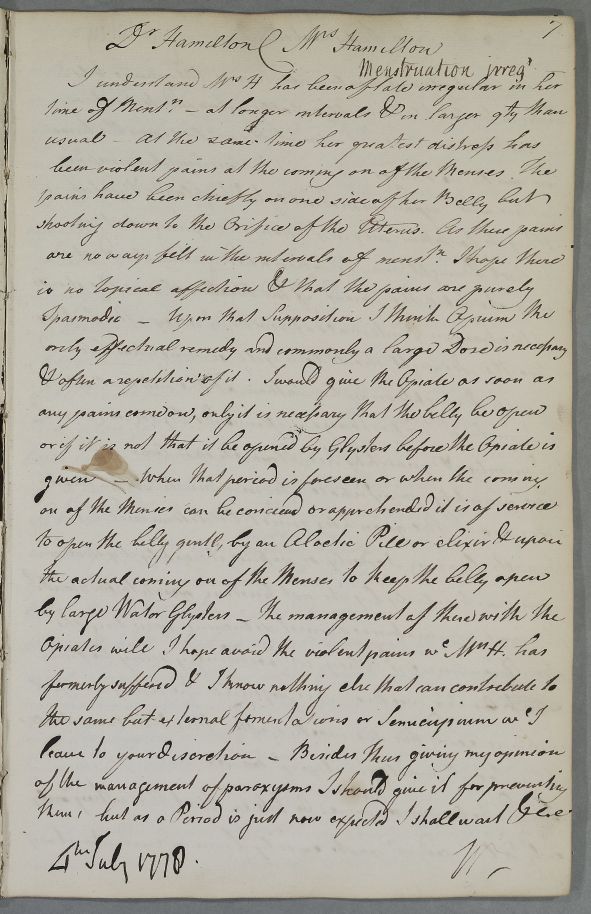 7
Dr Hamilton ( Mrs Hamilton
Menstruation irregr
I understand Mrs H has been of late irregular in her
time of Mentn - at longer intervals & in larger qty than
usual - at the same time her greatest distress has
been violent pains at the coming on of the Menses. The
pains have been chiefly on one side of her Belly but
shooting down to the Orifice of the Uterus. As these pains
are no ways felt in the intervals of menstn. I hope there
is no topical affection & that the pains are purely
Spasmodic - Upon that Supposition I think Opium the
only effectual remedy and commonly a large Dose is necessary
& often a repetition of it. I would give the Opiate as soon as
any pains come on, only it is necessary that the belly be open
or if it is not that it be opened by Glysters before the Opiate is
given - When that period is foreseen or when the coming
on of the Menses can be or apprehended it is of service
to open the belly gently by an Aloetic Pill or elixir & upon
the actual coming on of the Menses to keep the belly open
by large Water Glysters - the management of these with the
Opiates will I hope avoid the violent pains wc Mrs H. has
formerly suffered & I know nothing else that can contribute to
the same but external fomentations or Semicupium wc I
leave to your discretion - Besides thus giving my opinion
of the management of paroxysms I should give it for preventing
them, but as a Period is just now expected I shall wait &c
4th July 1778.